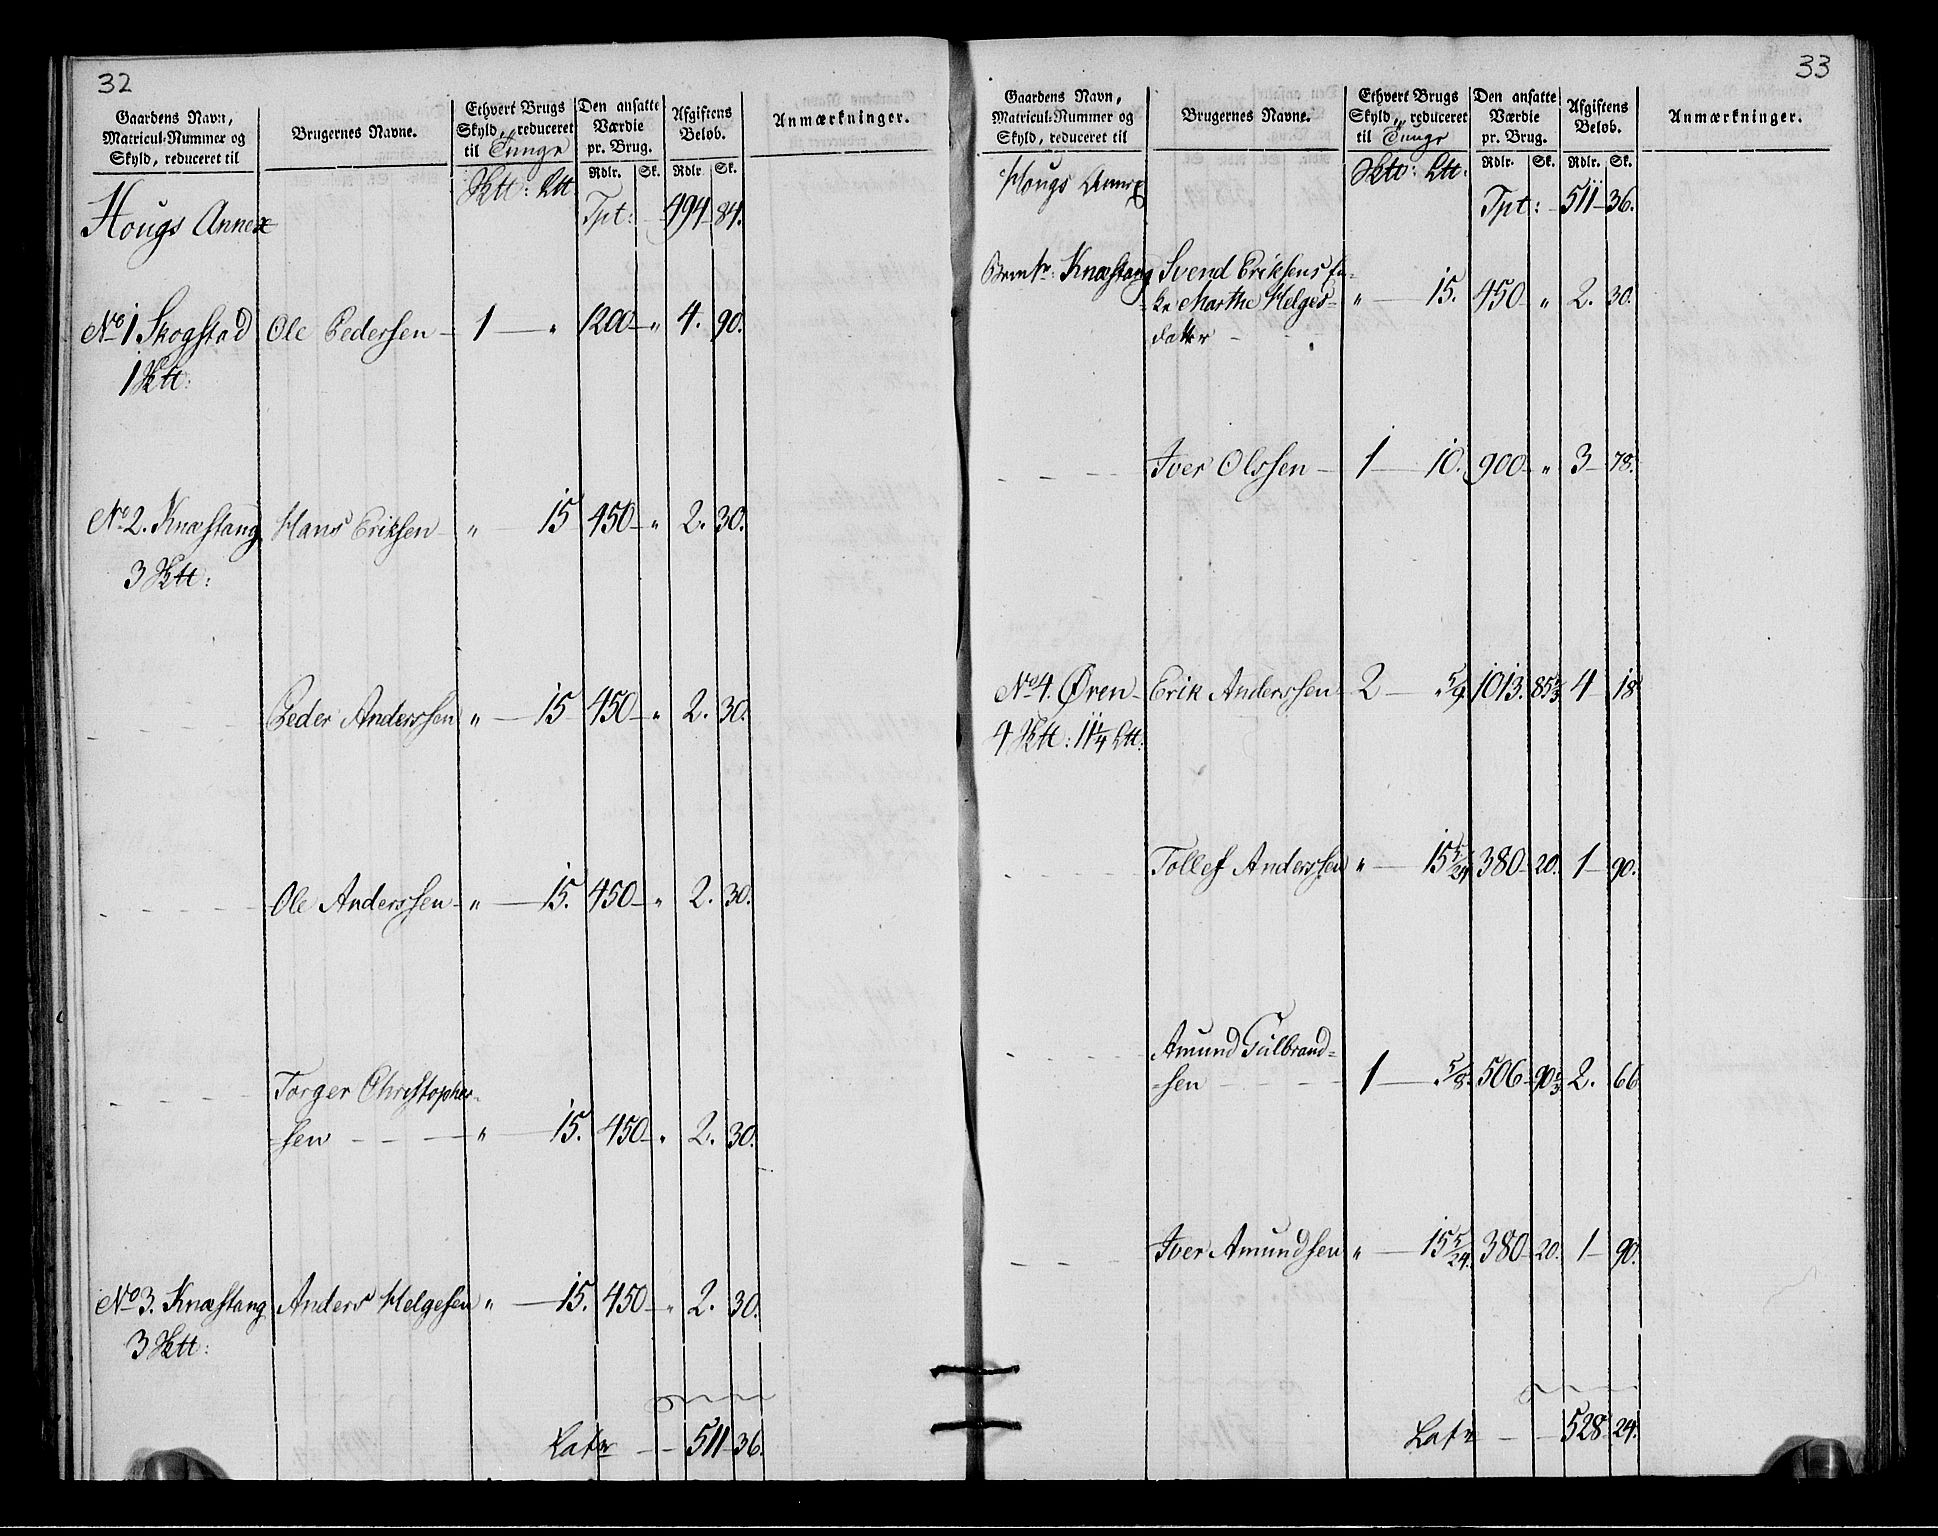 32
Gaardens Navn, Matricul-Nummer og Skyld, reduceret til | Brugernes Navne. | Ethvert Brugs Skyld, reduceret til Tunge | Den ansatte Værdie pr. Brug. | Afgiftens Beløb. | Anmærkninger.
Rdlr. Sk. Rdlr. Sk.
Hougs Annex Tpt: 494 84.
No 1 Skogstad Ole Pedersen 1 " 1200 " 4. 90.
No 2. Knæstang Hans Eriksen " 15 450 " 2. 30.
Peder Anderssen " 15 450 " 2. 30.
Ole Anderssen " 15. 450 " 2. 30.
Torger Christopher-
sen " 15. 450 " 2. 30.
No 3. Knæstang Anders Helgesen " 15. 450 " 2. 30.
Latr 511 36.
33
Gaardens Navn, Matricul-Nummer og Skyld, reduceret til | Brugernes Navne. | Ethvert Brugs Skyld, reduceret til Tunge | Den ansatte Værdie pr. Brug. | Afgiftens Beløb. | Anmærkninger.
Rdlr. Sk. Rdlr. Sk.
Hougs Annex
Tpt: 511 36.
Knæstang Svend Eriksens En-
ke Marthe Helges- " 15. 450 " 2. 30.
datter
Iver Olssen 1 10. 900 " 3 78.
No 4. Øren Erik Anderssen 2 5/9 1013. 85 4 18
Tollef Anderssen " 15 5/24 380 20. 1 90.
Amund Gulbrand-
sen 1 5/8. 506 90 2. 66
Iver Amundsen " 15 5/24. 380 20. 1 90.
Latr 528 24.